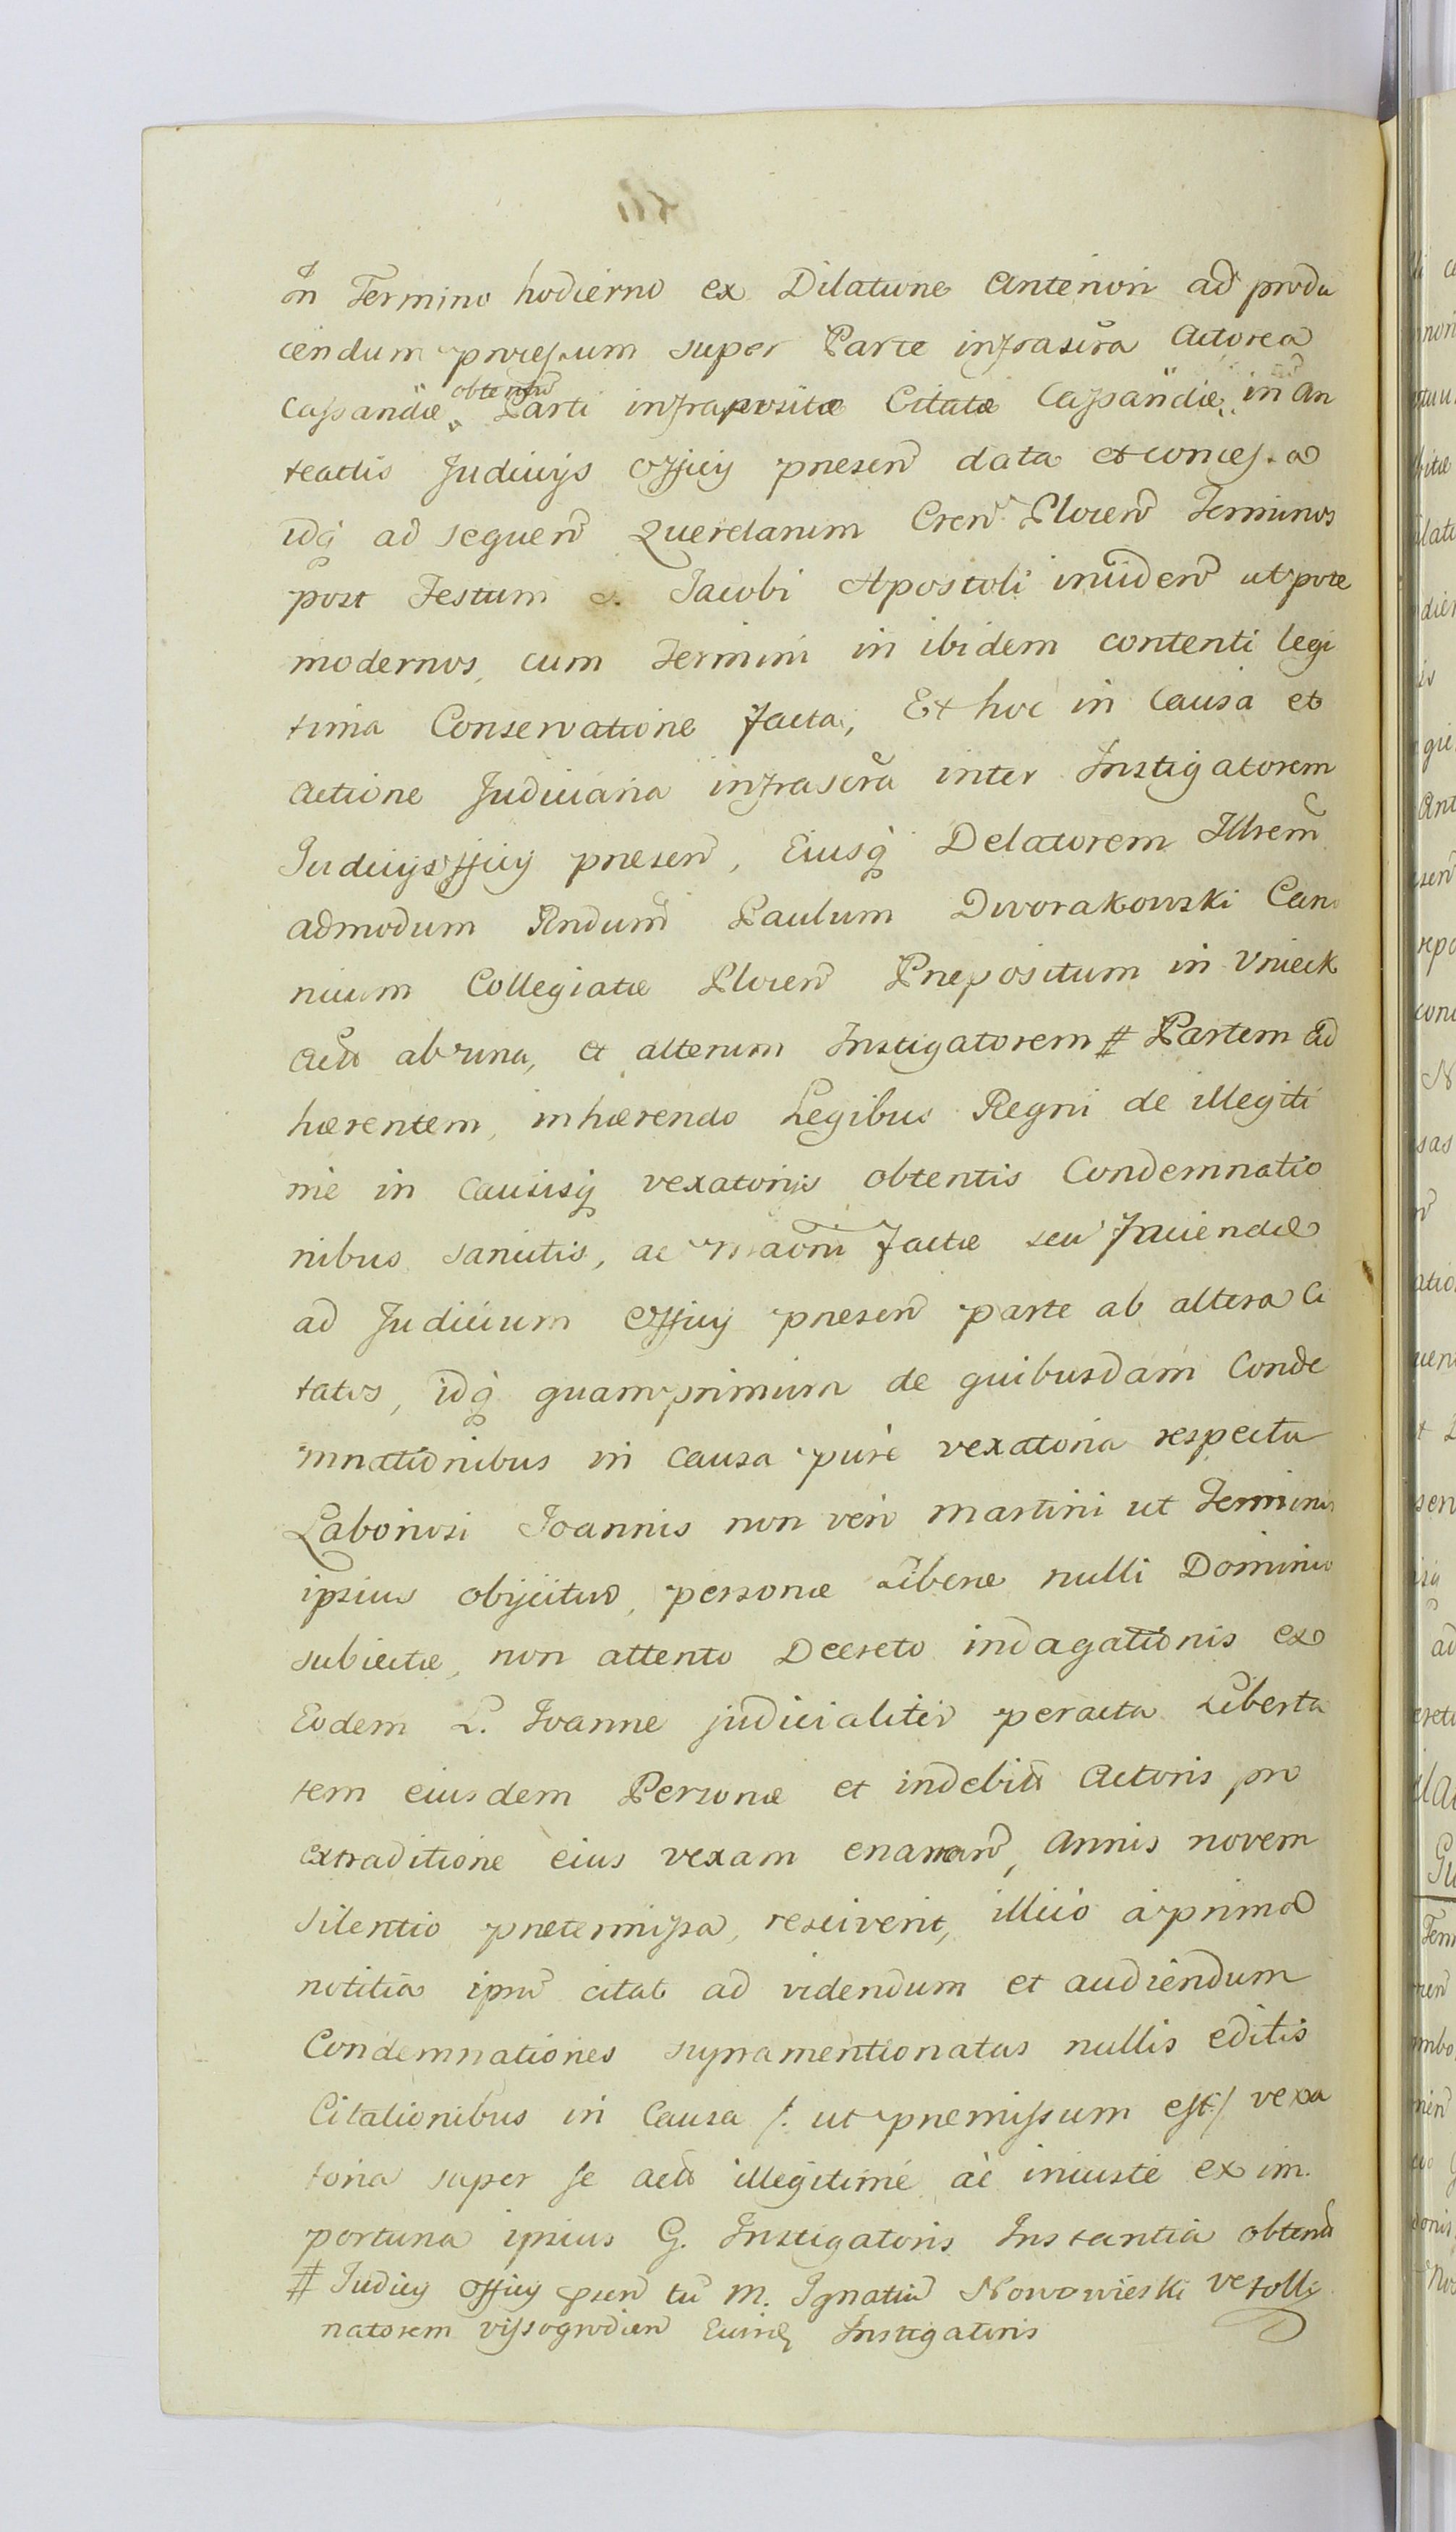 In Termino hodierno ex Dilatione Anteriori ad produ
cendum processum super Parte infrascra Actorea
Cassandae obtentū Parti infrapositae Citatae Cassandae, in an
teactis Judicijs Officij praesen data et concessa
idq ad sequen Querelarum Cren Plocen Terminos
post Festum S. Jacobi Apostoli inciden utpote
modernos, cum Termini in ibidem contenti legi
tima Conservatione facta, Et hoc in Causa et
actione Judiciaria infrascra inter Instigatorem
Judicijs Officij praesen, Eiusq Delatorem Illrem
admodum Rndum Paulum Dworakowski Cano
nicum Collegiatae Plocen Praepositum in Unieck
Act ab una, et alterum Instigatorem # Partem ad
haerentem, inhaerendo Legibus Regni de illegiti
me in causisq vexatorijs obtentis Condemnatio
nibus sancitis, ac factae seu faciendae
ad Judicium Officij praesen parte ab altera Ci
tatos, idq quamprimum de quibusdam Conde
mnationibus in causa pure vexatoria respectu
Laboriosi Joannis non vero Martini ut Terminis
ipsius obijcitur, personae Liberae nulli Dominio
subiectae, non attento Decreto indagationis ex
Eodem L. Joanne judicialiter peracta Liberta
tem eiusdem Personae et indebitā Actoris pro
extraditione eius vexam enarran, annis novem
silentio praetermissa, resciverit, illico a prima
notitia ipsū citat ad videndum et audiendum
Condemnationes supramentionatas nullis editis
Citationibus in Causa /: ut praemissum est :/ vexa
toria super se act illegitime ac iniuste ex im
portuna ipsius G. Instigatoris Instantia obtent
# Judicij Officij psen tū M. Ignatiū Nowowieski
natorem Vissogrodien Eiusq Instigatoris